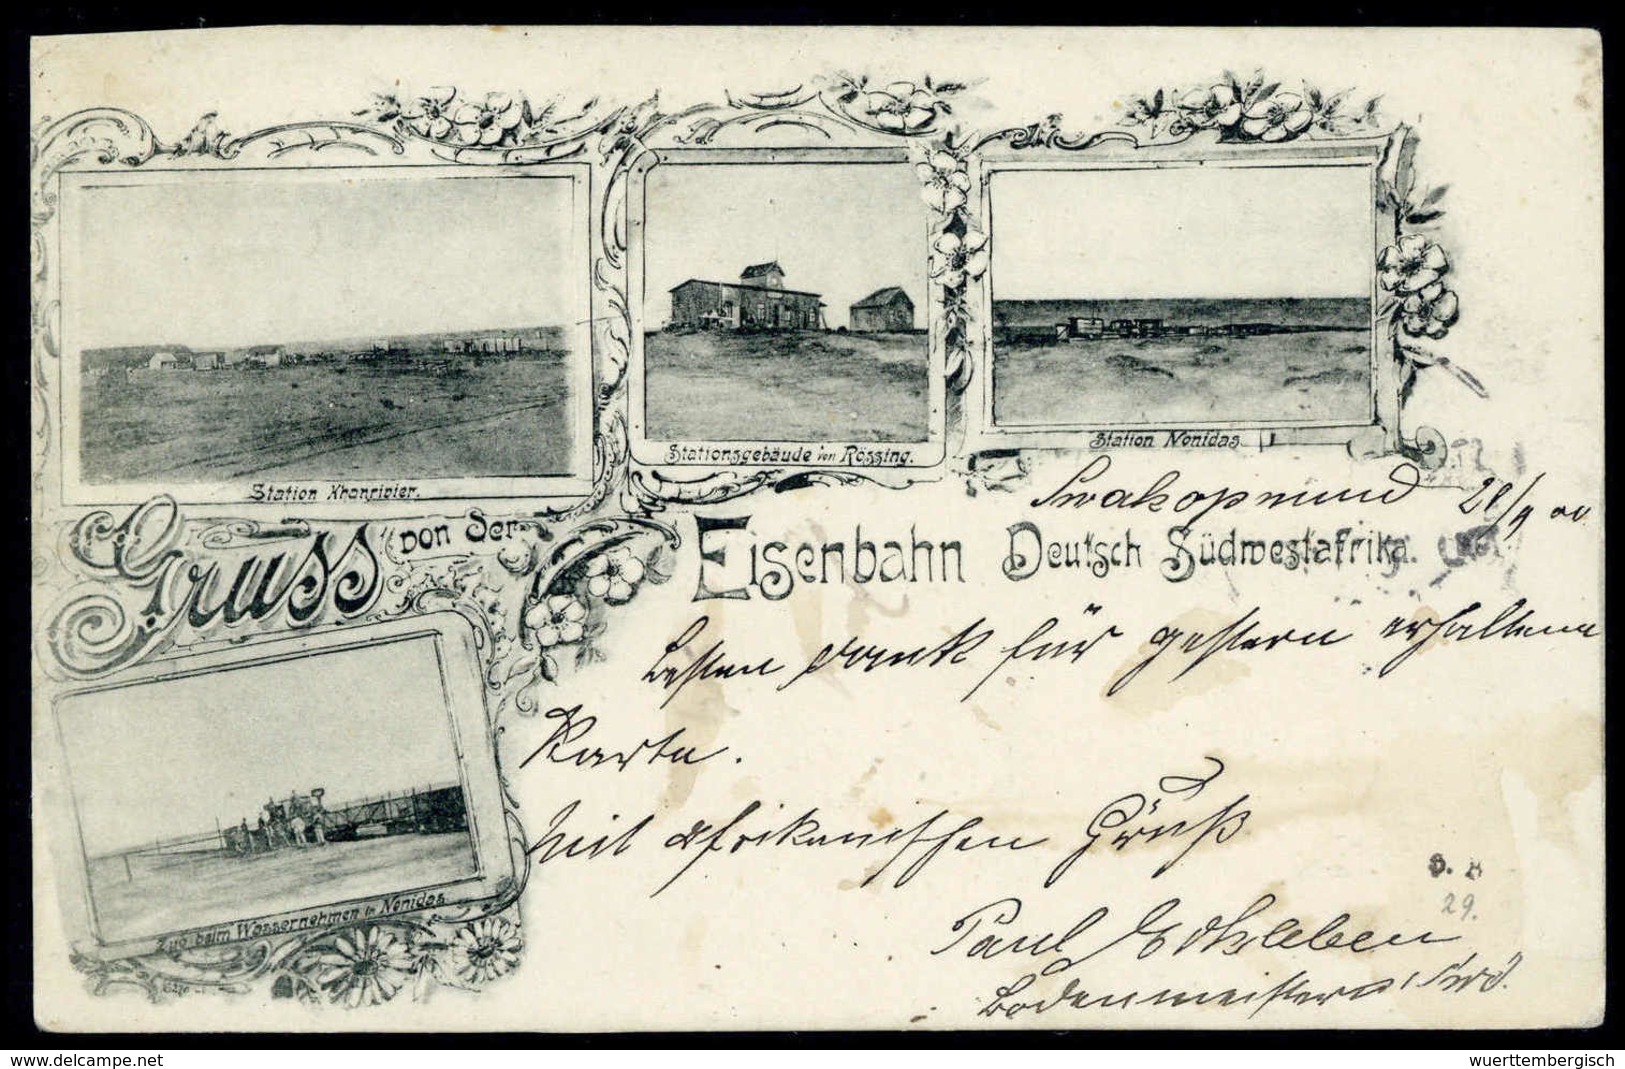 Station Khanrivier.
Stationsgebäude von Rössing.
Station Nonidas
Gruss von der Eisenbahn Deutsch Südwestafrika.
Swakopmund 28/9 00
Besten Dank für gestern erhaltene
Karte.
Mit afrikanischen Gruß
Paul
Bodenmeister
Zug beim Wassernehmen in Nonidas
29.
delcampe.net
wuerttembergisch